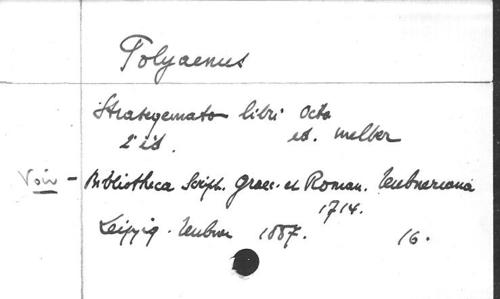 Polyaenus
Strategemato libri Octo
2 éd. ed. Melber
Voir - Bibliotheca Script. Graec. et Roman. Teubneriana
1714.
Leipzig. Teubner 1887. 16.